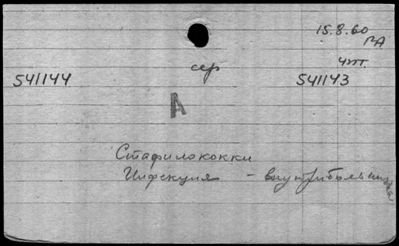 15.8.60
ВА
сер
чт.
541144
541143
А
Стафилококки
Инфекция - внутрибольничная